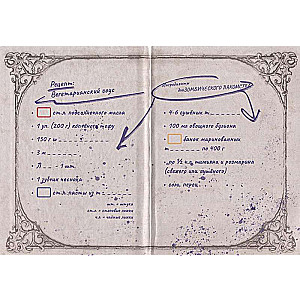 Рецепт:
Вегетарианский соус
ст.л. подсолнечного масла
1 уп. (200 г) копчёного тофу
150 г м
3 м
Л - 1 шт.
1 зубчик чеснока
ст.л. пасты из т
шт. = штука
ст.л. = столовая ложка
ч.л. = чайная ложка
Ингредиенты
ЗОМБИческого лакомства
• 4-6 сушёных т
• 100 мл овощного бульона
банок маринованных
по 400 г
• по ½ ч.л. тимьяна и розмарина
(свежего или сушёного)
• соль, перец